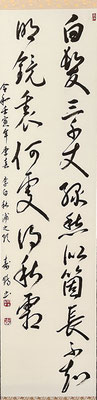 白髮三千丈緣愁似箇長不知
明鏡裏何處得秋霜
令和壬寅年 李白秋浦之歌 書